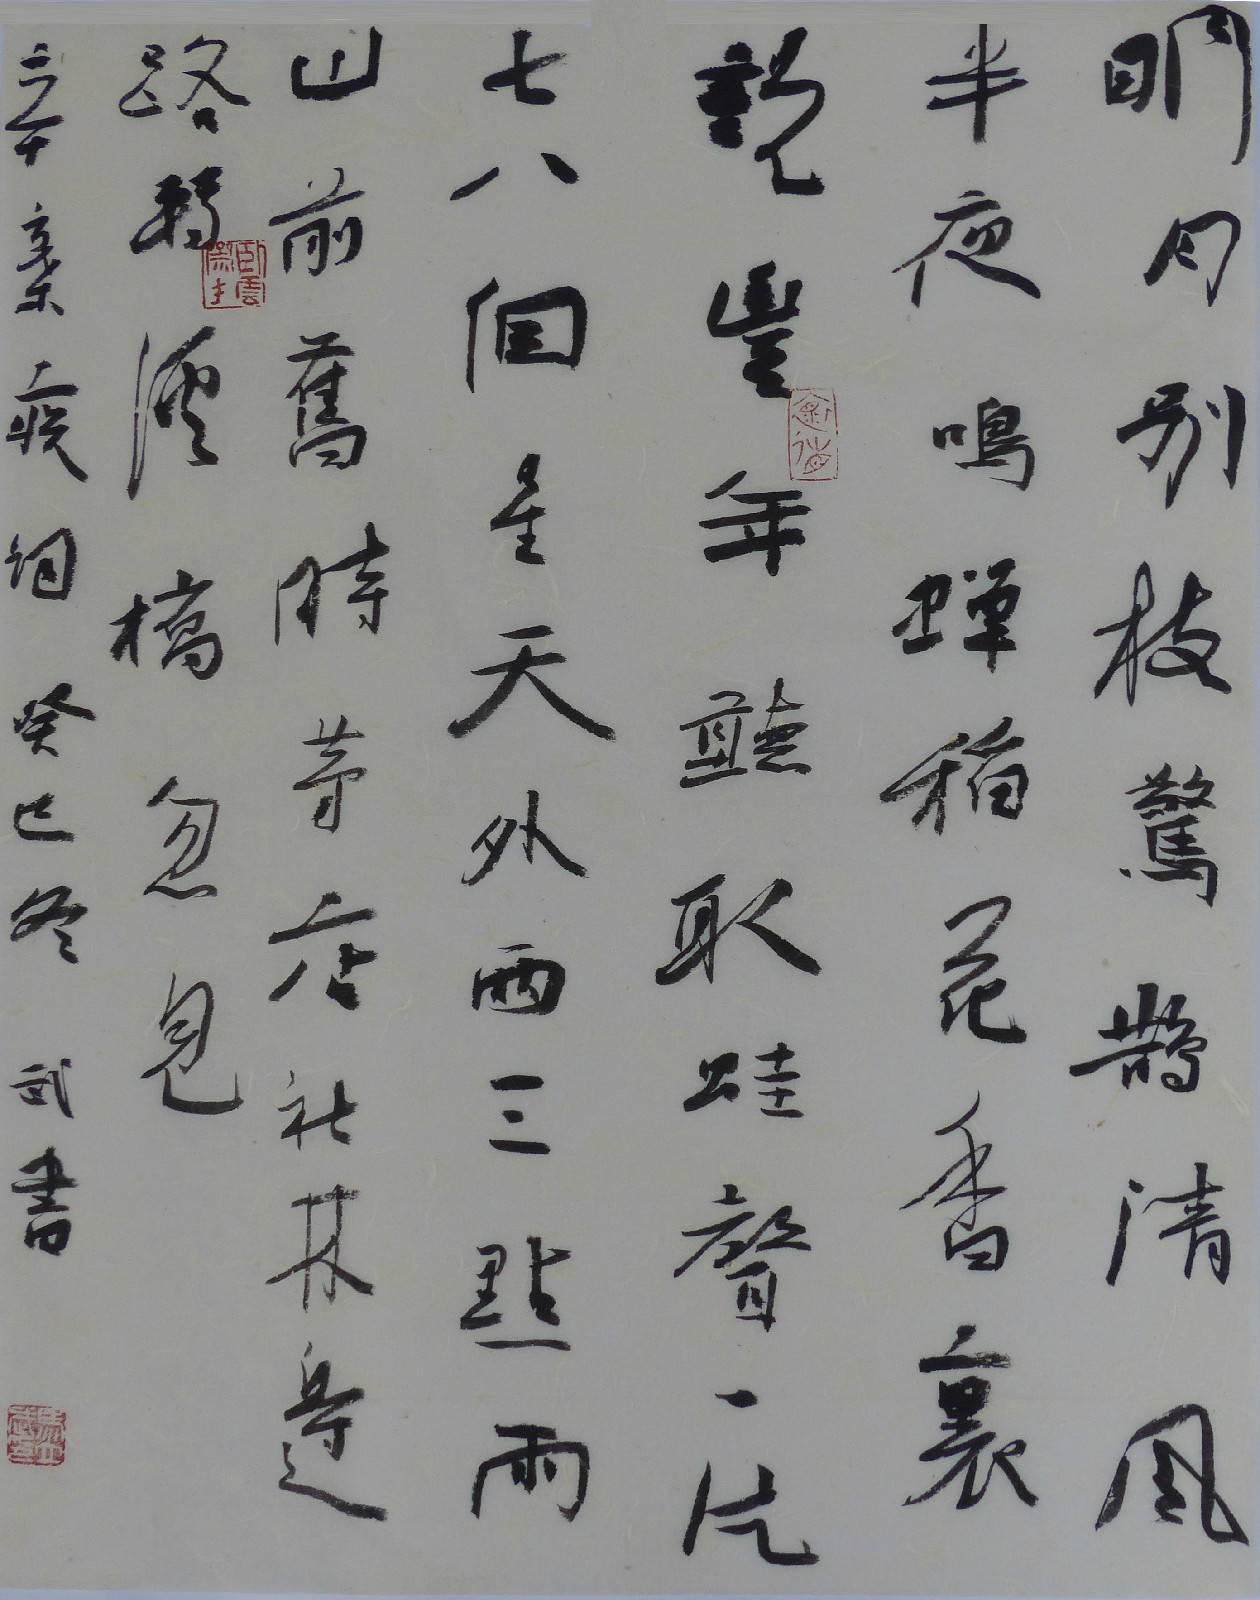 明月别枝驚鵲清風
半夜鳴蟬稻花香裏
説豐年聽取蛙聲一片
七八個星天外兩三點雨
山前舊時茅店社林邊
路轉溪橋忽見
辛棄疾詞癸巳冬 武書
卧雲